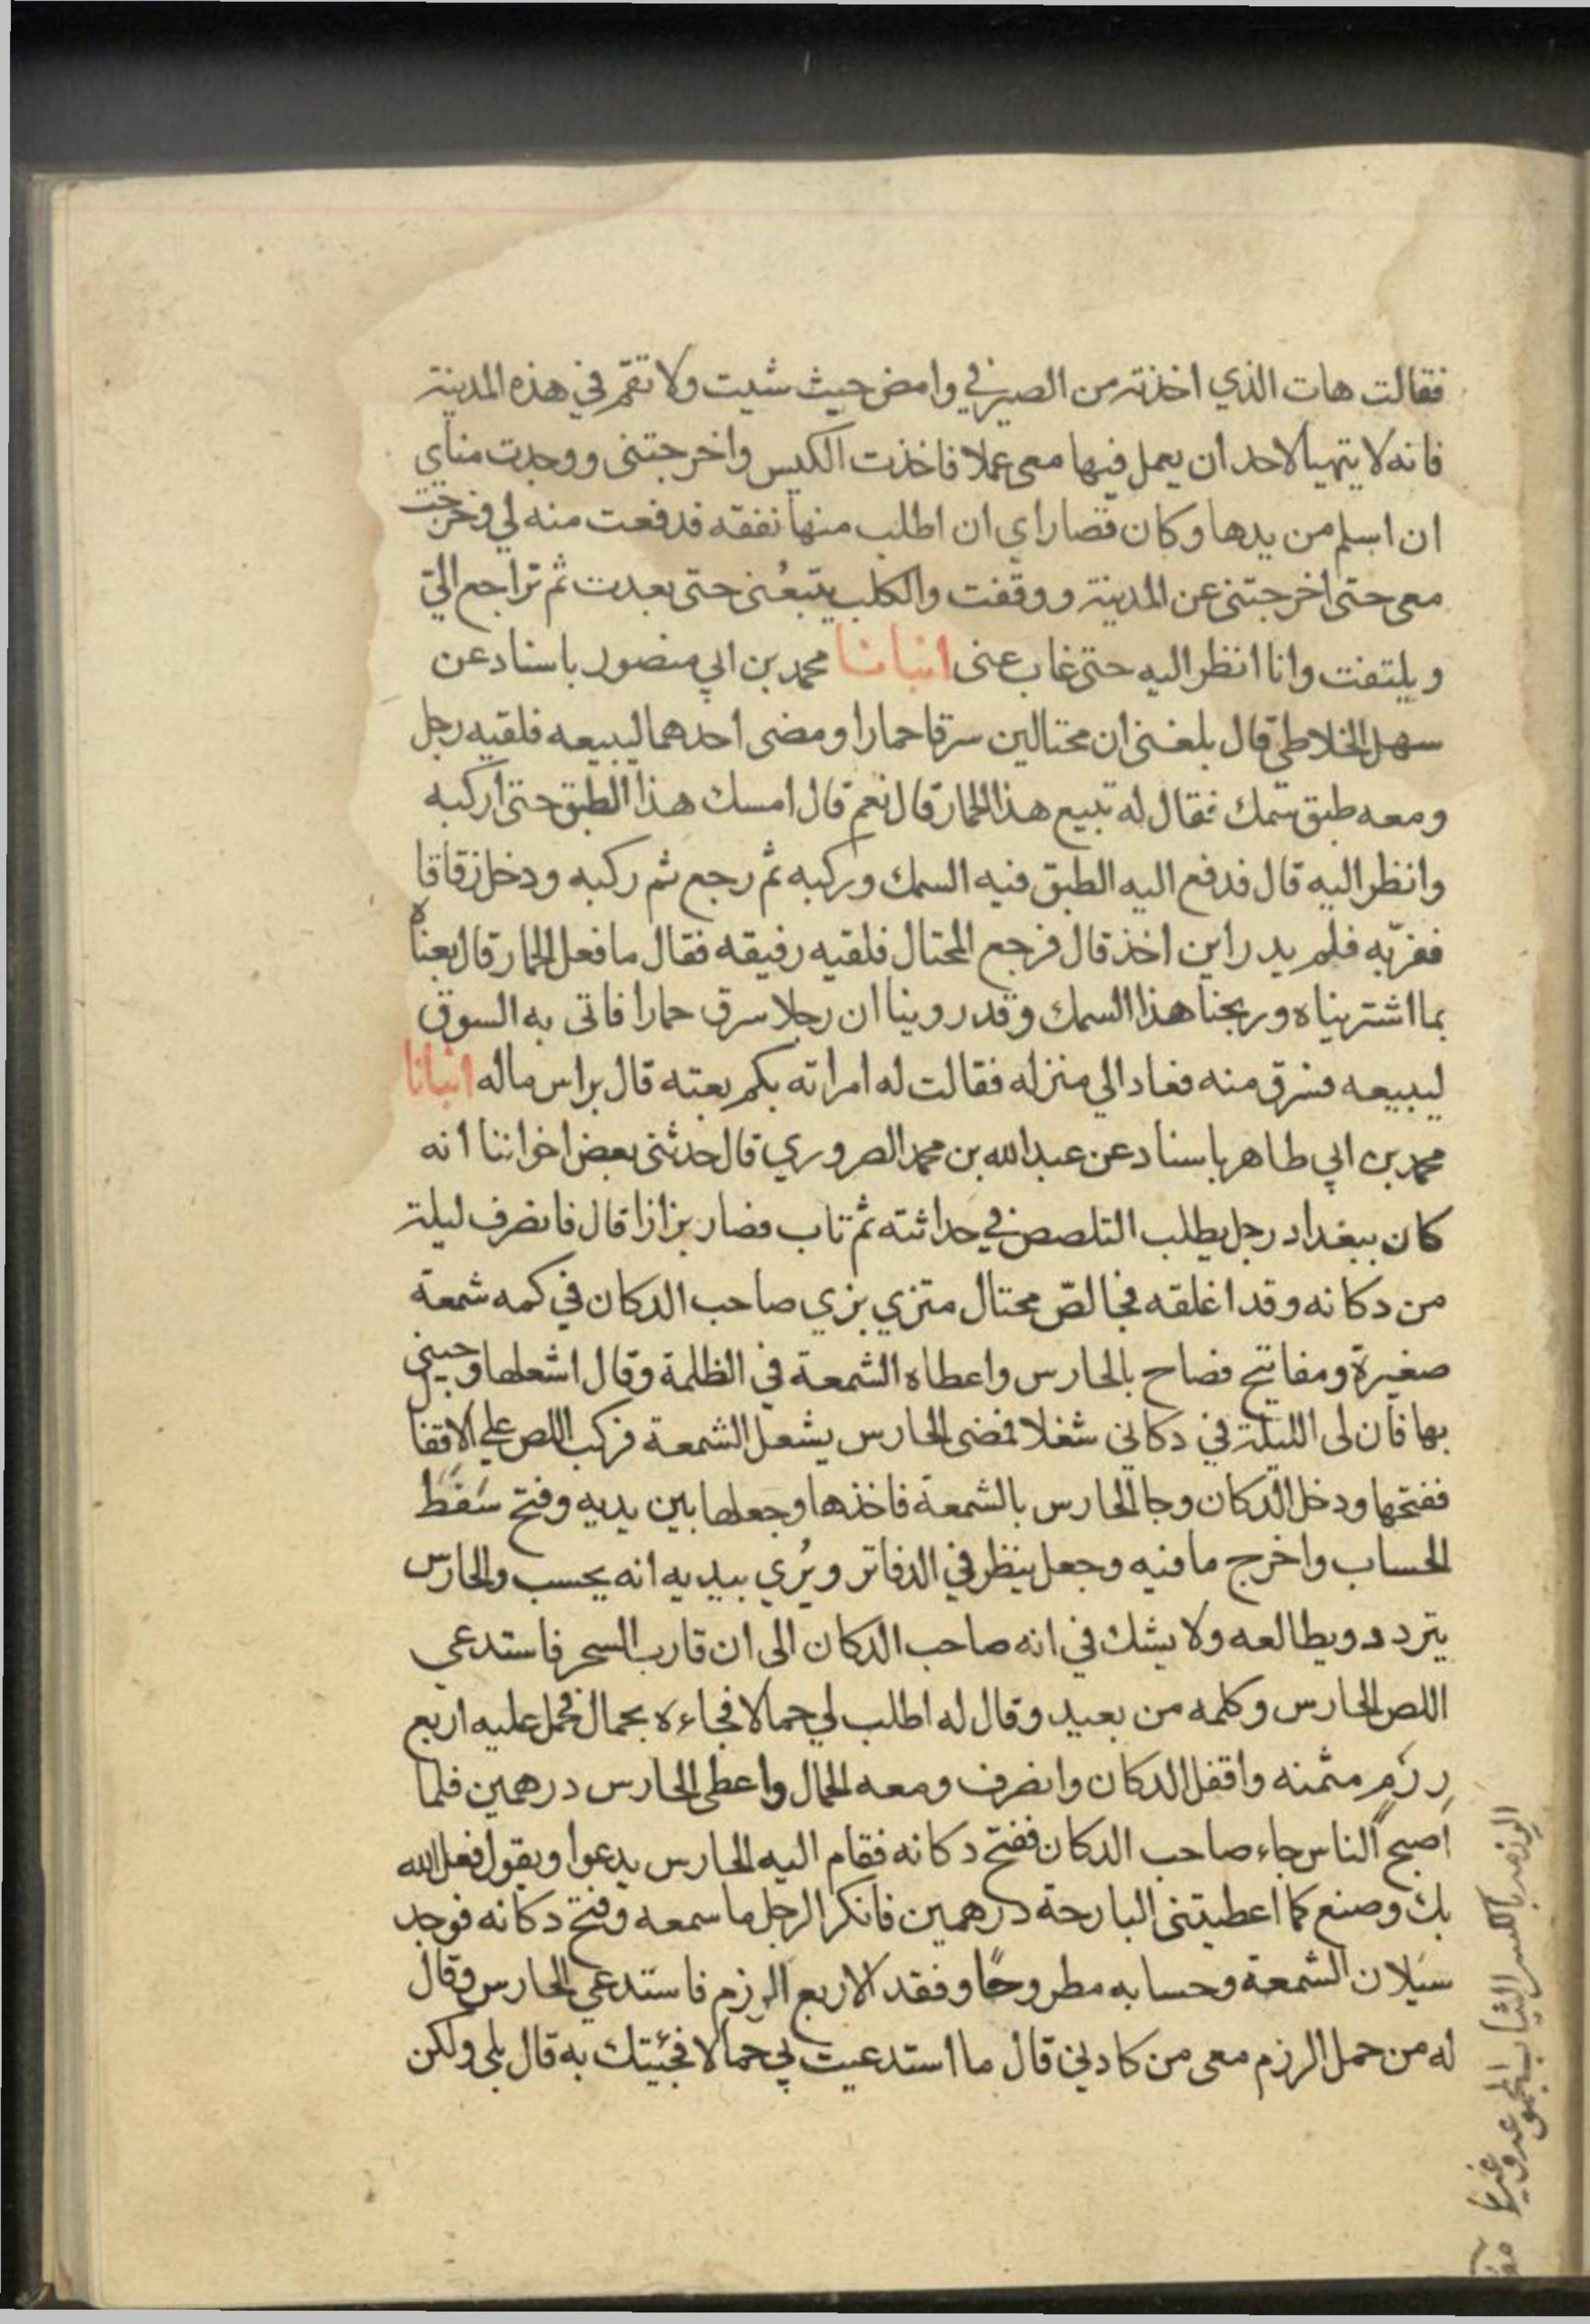 فقالت هات الذي اخذته من الصيرفي وامض حيث شيت ولا تقم في هذه المدينة
فانه لا يتهيا لاحد ان يعمل فيها معي عملا فاخذت الكيس واخرجتني ووجدت مناي
ان اسلم من يدها وكان قصاراي ان اطلب منها نفقه فدفعت منه لي وخرجت
معي حتى اخرجتني عن المدينة ووقفت والكلب يتبعُني حتى بعدت ثم تراجع الي
ويلتفت وانا انظر اليه حتى غاب عني انبانا محمد بن ابي منصور باسناد عن
سهل الخلاطي قال بلغني ان محتالين سرقا حمارا ومضى احدهما ليبيعه فلقيه رجل
ومعه طبق سمك فقال له تبيع هذا الحمار قال نعم قال امسك هذا الطبق حتى اركبه
وانظر اليه قال فدفع اليه الطبق فيه السمك وركبه ثم رجع ثم ركبه ودخل زقاقا
ففرّ به فلم يدر اين اخذ قال فرجع المحتال فلقيه رفيقه فقال ما فعل الحمار قال بعناه
بما اشتريناه وربحنا هذا السمك وقد روينا ان رجلا سرق حمارا فاتى به السوق
ليبيعه فسرق منه فعاد الي منزله فقالت له امراته بكم بعته قال براس ماله انبانا
محمد بن ابي طاهر باسناد عن عبد الله بن محمد الصروري قال حدثني بعض اخواننا انه
كان ببغداد رجل يطلب التلصص في حداثته ثم تاب فصار بزازا قال فانصرف ليلة
من دكانه وقد اغلقه فجا لصّ محتال متزي بزي صاحب الدكان في كمه شمعة
صغيرة ومفاتيح فصاح بالحارس واعطاه الشمعة في الظلمة وقال اشعلها وجيني
بها فان لى الليلة في دكاني شغلا فمضى الحارس يشعل الشمعة فركب اللص علي الاقفا
ففتحها ودخل الدكان وجا الحارس بالشمعة فاخذها وجعلها بين يديه وفتح سَفَط
الحساب واخرج ما فيه وجعل ينظر في الدفاتر ويُري بيديه انه يحسب والحارس
يتردد ويطالعه ولا يشك في انه صاحب الدكان الى ان قارب السحر فاستدعي
اللص الحارس وكلمه من بعيد وقال له اطلب لي حمالا فجاءه بحمال فحمل عليه اربع
رِزَم مثمنه واقفل الدكان وانصرف ومعه الحمال واعطى الحارس درهمين فلما
اصبح الناس جاء صاحب الدكان ففتح دكانه فقام اليه الحارس يدعوا ويقول فعل الله
بك وصنع كما اعطيتني البارحة درهمين فانكر الرجل ما سمعه وفتح دكانه فوجد
سيلان الشمعة وحسابه مطروحًا وفقد الاربع الرزم فاستدعي الحارس وقال
له من حمل الرزم معى من كادني قال ما استدعيت بي حمالا فجئيتك به قال بلى ولكن
الرزمه بالكسر الثياب المجموعه وغيرها